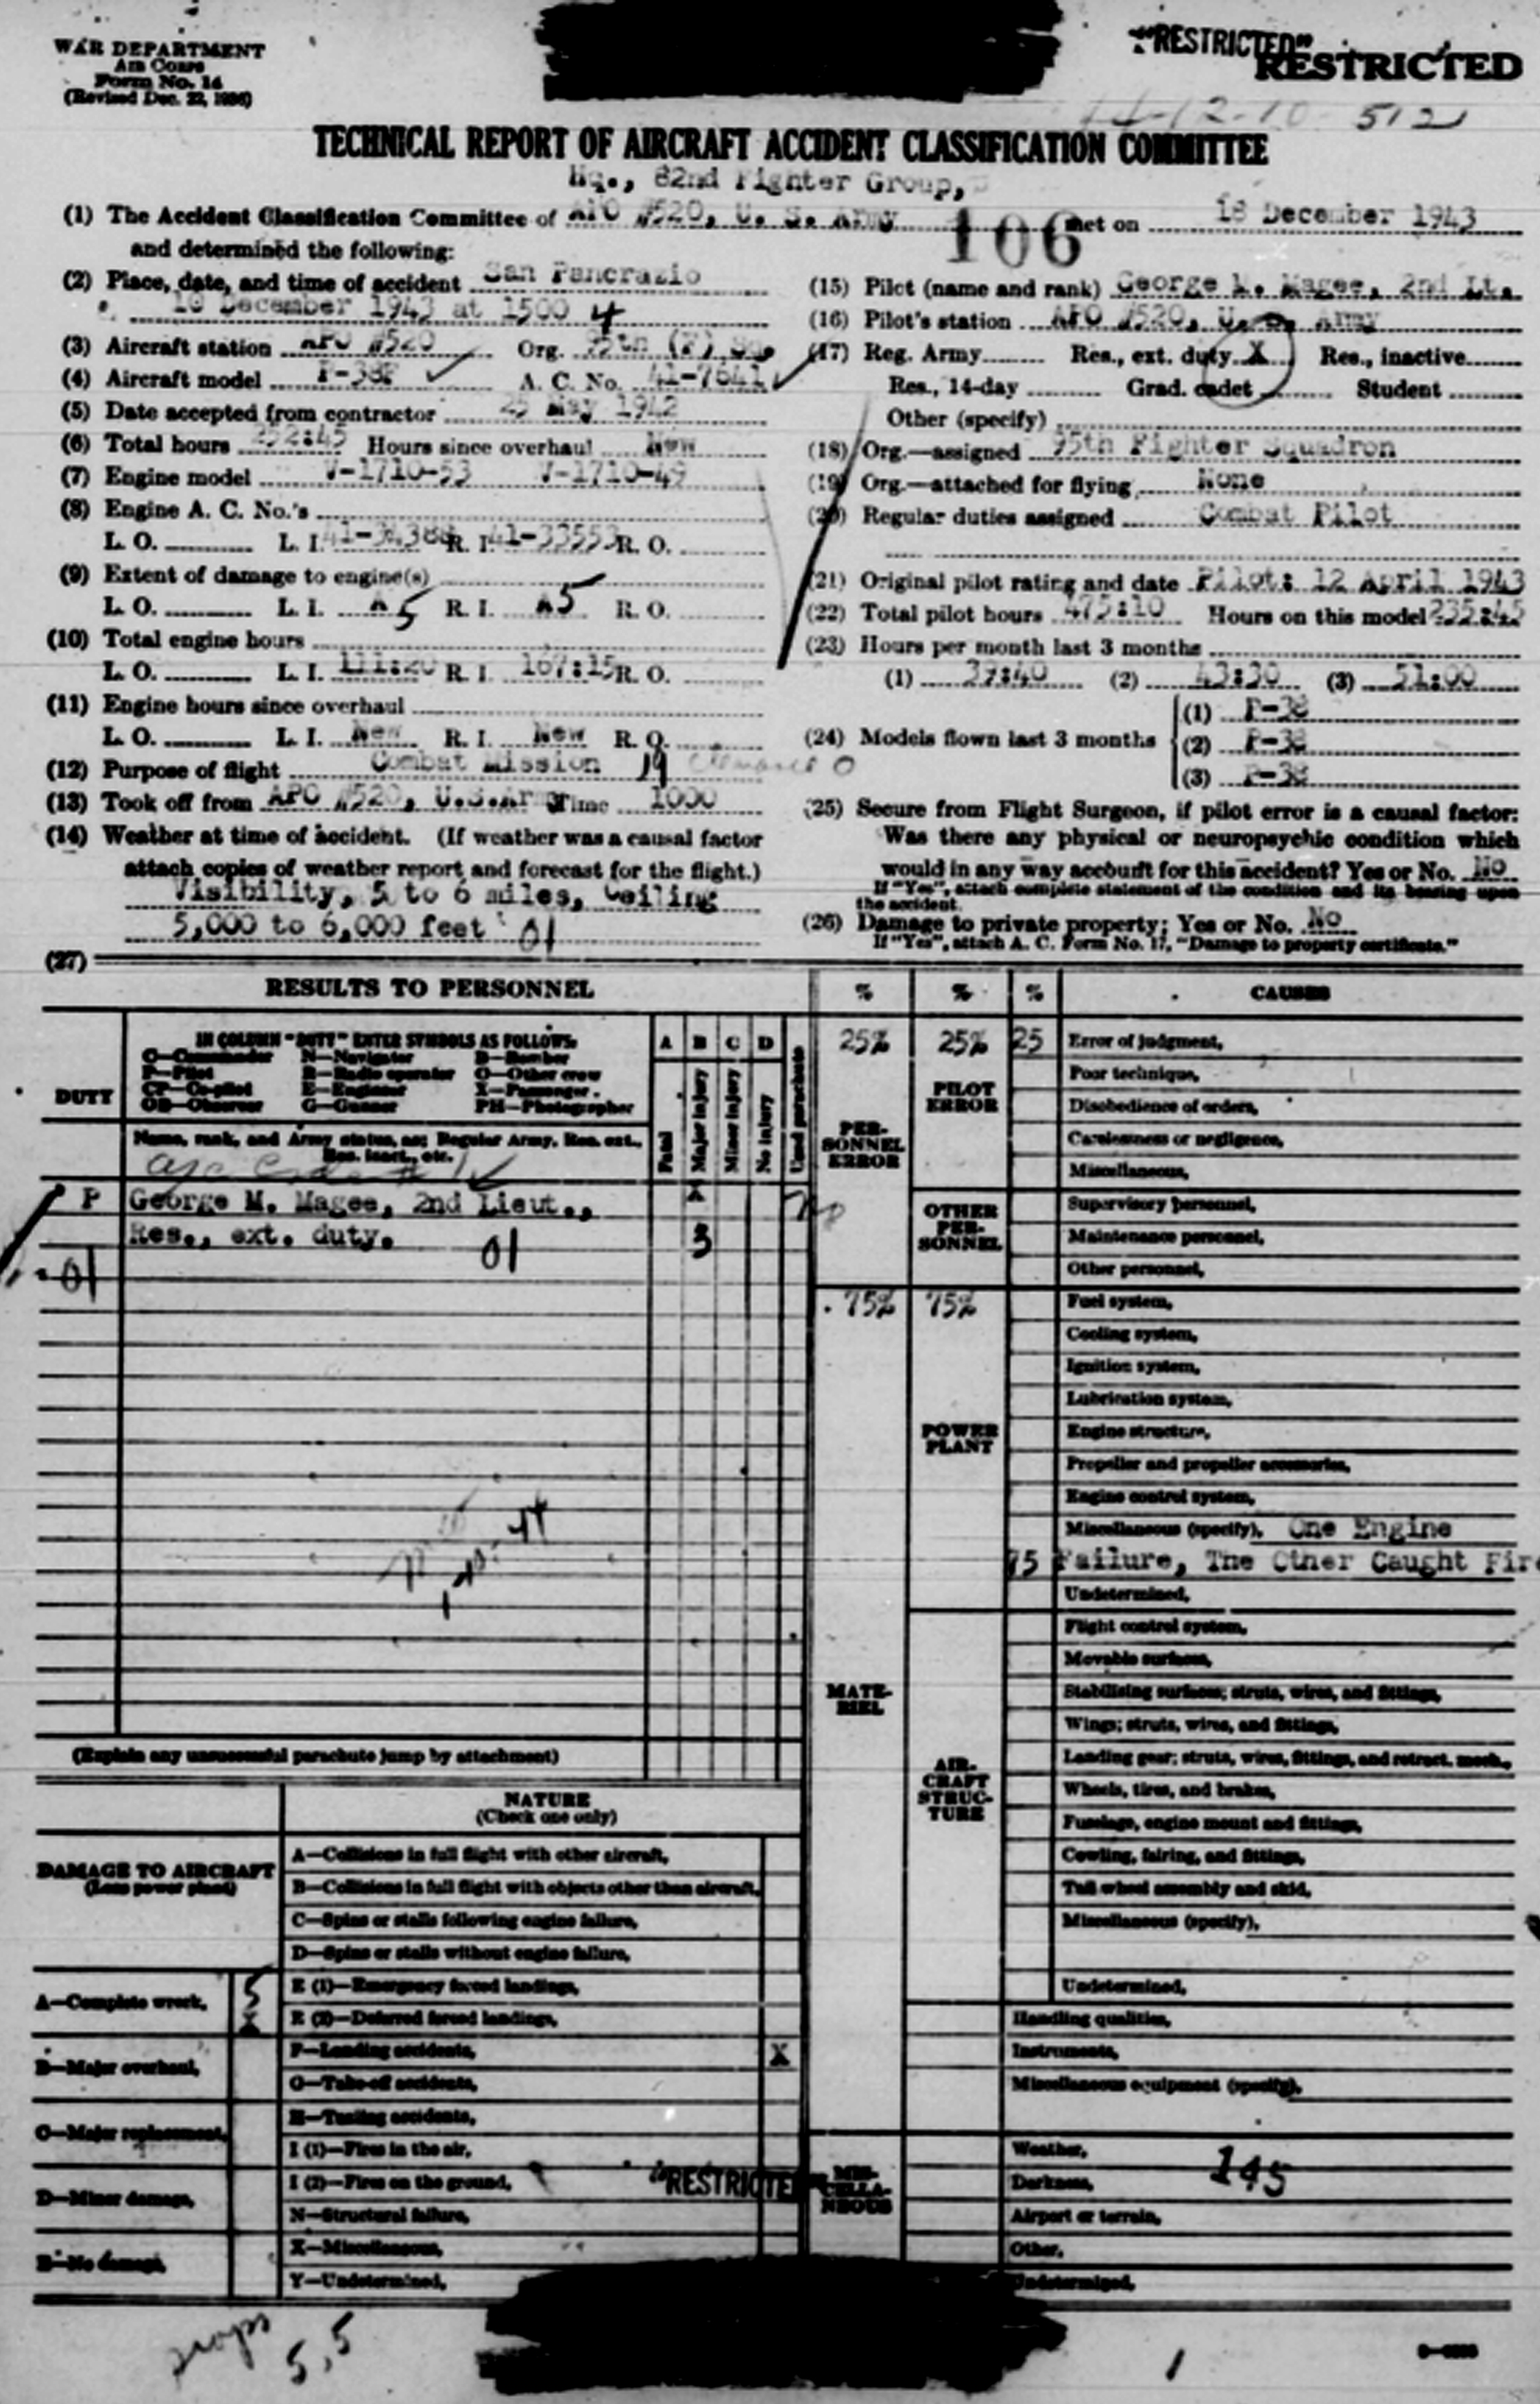 WAR DEPARTMENT
AIR CORPS
Form No. 14
(Revised Dec. 22, 1936)
"RESTRICTED"
RESTRICTED
512
TECHNICAL REPORT OF AIRCRAFT ACCIDENT CLASSIFICATION COMMITTEE
Hq., 82nd Fighter Group,
(1) The Accident Classification Committee of APO #520, U. S. Army 106 met on 18 December 1943
and determined the following:
(2) Place, date, and time of accident San Pancrazio
10 December 1943 at 1500 4
(3) Aircraft station APO #520 Org. 95th (F) Sq.
(4) Aircraft model P-38F A. C. No. 41-7641
(5) Date accepted from contractor 25 May 1942
(6) Total hours 252:45 Hours since overhaul New
(7) Engine model V-1710-53 V-1710-49
(8) Engine A. C. No.'s
L. O. L. I. 41-34388 R. I. 41-33553 R. O.
(9) Extent of damage to engine(s)
L. O. L. I. A 5 R. I. A5 R. O.
(10) Total engine hours
L. O. L. I. 111:20 R. I. 167:15 R. O.
(11) Engine hours since overhaul
L. O. L. I. New R. I. New R. O.
(12) Purpose of flight Combat Mission 19
(13) Took off from APO #520, U.S.Army Time 1000
(14) Weather at time of accident. (If weather was a causal factor
attach copies of weather report and forecast for the flight.)
Visibility, 5 to 6 miles, Ceiling
5,000 to 6,000 feet 01
(15) Pilot (name and rank) George M. Magee, 2nd Lt.
(16) Pilot's station APO #520, U. S. Army
(17) Reg. Army Res., ext. duty X Res., inactive
Res., 14-day Grad. cadet Student
Other (specify)
(18) Org.—assigned 95th Fighter Squadron
(19) Org.—attached for flying None
(20) Regular duties assigned Combat Pilot
(21) Original pilot rating and date Pilot: 12 April 1943
(22) Total pilot hours 475:10 Hours on this model 235:45
(23) Hours per month last 3 months
(1) 39:40 (2) 43:30 (3) 51:00
(24) Models flown last 3 months
(1) P-38
(2) P-38
(3) P-38
(25) Secure from Flight Surgeon, if pilot error is a causal factor:
Was there any physical or neuropsychic condition which
would in any way account for this accident? Yes or No. No
If "Yes", attach complete statement of the condition and its bearing upon
the accident.
(26) Damage to private property; Yes or No. No
If "Yes", attach A. C. Form No. 17, "Damage to property certificate."
(27)
RESULTS TO PERSONNEL
DUTY
IN COLUMN "DUTY" ENTER SYMBOLS AS FOLLOWS:
C—Commander N—Navigator B—Bomber
P—Pilot R—Radio operator O—Other crew
CP—Co-pilot E—Engineer X—Passenger
OB—Observer G—Gunner PH—Photographer
Name, rank, and Army status, as: Regular Army, Res. ext.,
Res. inact., etc.
A B C D
Fatal
Major injury
Minor injury
No injury
Used parachute
P George M. Magee, 2nd Lieut., X
Res., ext. duty. 01 3
01
(Explain any unsuccessful parachute jump by attachment)
DAMAGE TO AIRCRAFT
(Less power plant)
A—Complete wreck, 5 X
B—Major overhaul,
C—Major replacement,
D—Minor damage,
E—No damage,
NATURE
(Check one only)
A—Collisions in full flight with other aircraft,
B—Collisions in full flight with objects other than aircraft,
C—Spins or stalls following engine failure,
D—Spins or stalls without engine failure,
E (1)—Emergency forced landings,
E (2)—Deferred forced landings,
F—Landing accidents, X
G—Take-off accidents,
H—Taxiing accidents,
I (1)—Fires in the air,
I (2)—Fires on the ground,
N—Structural failure,
X—Miscellaneous,
Y—Undetermined,
"RESTRICTED
% % % CAUSES
25% 25% 25 Error of judgment,
PERSONNEL ERROR
PILOT ERROR
Poor technique,
Disobedience of orders,
Carelessness or negligence,
Miscellaneous,
OTHER PERSONNEL
Supervisory personnel,
Maintenance personnel,
Other personnel,
75% 75% Fuel system,
MATERIEL
POWER PLANT
Cooling system,
Ignition system,
Lubrication system,
Engine structure,
Propeller and propeller accessories,
Engine control system,
Miscellaneous (specify), One Engine
75 Failure, The Other Caught Fire
Undetermined,
AIRCRAFT STRUCTURE
Flight control system,
Movable surfaces,
Stabilizing surfaces; struts, wires, and fittings,
Wings; struts, wires, and fittings,
Landing gear; struts, wires, fittings, and retract. mech.,
Wheels, tires, and brakes,
Fuselage, engine mount and fittings,
Cowling, fairing, and fittings,
Tail wheel assembly and skid,
Miscellaneous (specify),
Undetermined,
Handling qualities,
Instruments,
Miscellaneous equipment (specify),
MISCELLANEOUS
Weather,
Darkness,
145
Airport or terrain,
Other,
Undetermined,
5,5
1